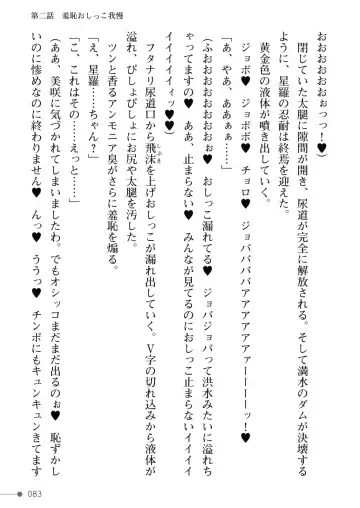 第二話 羞恥おしっこ我慢
おおおおおおぉっっ！♥)
　閉じていた太腿に隙間が開き、尿道が完全に解放される。そして満水のダムが決壊する
ように、星羅の忍耐は終焉を迎えた。
　黄金色の液体が噴き出していく。
　ジョボ♥　ジョボボ♥　チョロ♥　ジョババババアアアアアアァーーーーッ！
「あ、やあ、ああぁぁ……」
(ふおおおおおおおぉぉ♥　おしっこ漏れてる♥　ジョバジョバって洪水みたいに溢れち
ゃってますの♥　ああ、止まらない♥　みんなが見てるのにおしっこ止まらないイイイイ
イイイイイィッ♥♥)
　フタナリ尿道口から飛沫を上げおしっこが漏れ出していく。V字の切れ込みから液体が
しぶき
溢れ、びしょびしょにお尻や太腿を汚した。
　ツンと香るアンモニア臭がさらに羞恥を煽る。
「え、星羅……ちゃん？」
「こ、これはその……えっと……」
(ああ、美咲に気づかれてしまいましたわ。でもオシッコまだまだ出るのぉ♥　恥ずかし
いのに惨めなのに終わりません♥　んっ♥　ううっ♥　チンポにもキュンキュンきてます
083